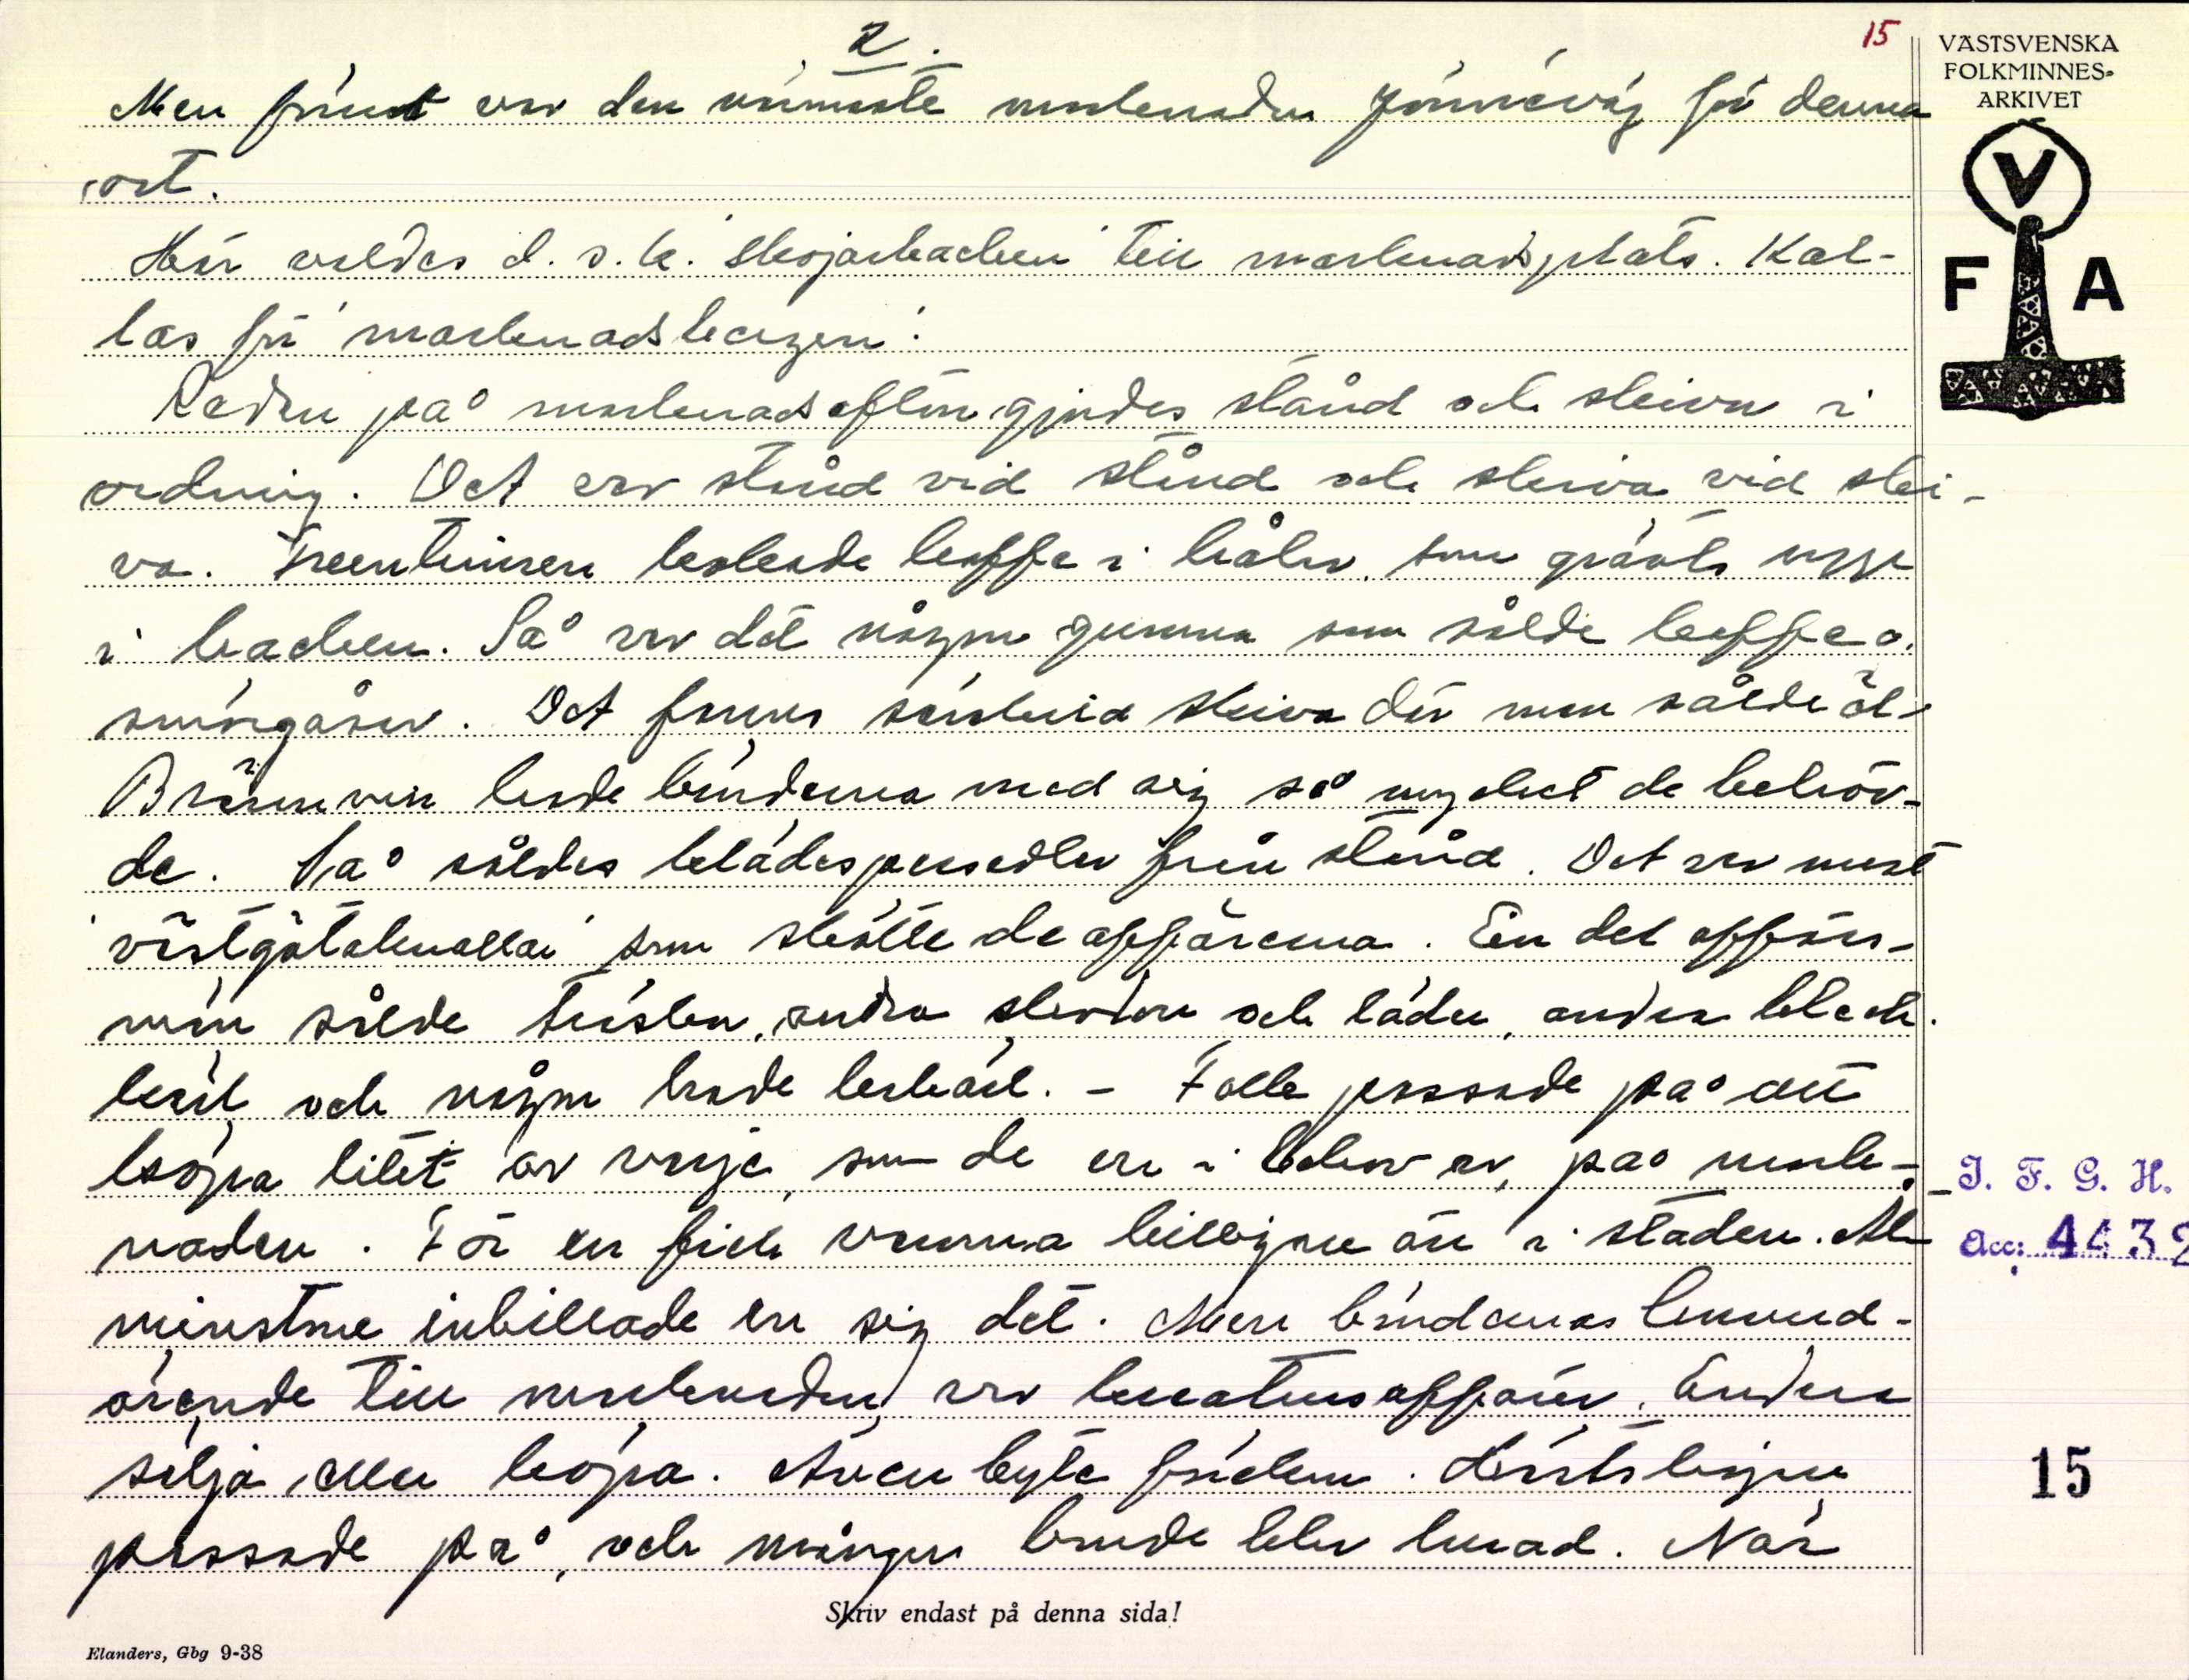 2.
15
VÄSTSVENSKA
FOLKMINNES-
ARKIVET
V
F A
Men främst var den närmaste marknaden för denna
ort.
Här valdes d.s.k. "skojarbacken" till marknadsplats. Kal-
las för "marknadshagen".
Redan på marknadsafton gjordes stånd och skivor i
ordning. Det var stånd vid stånd och skiva vid ski-
va. kokade kaffe i hålor, som grävts uppe
i backen. Så var det någon gumma som sålde kaffe o.
smörgåsar. Det fanns särskild skiva där man sålde öl.
Brännvin hade bönderna med sig så mycket de behöv-
de. Så såldes klädespersedlar från stånd. Det var mest
"västgötaknallar" som skötte de affärerna. En del affärs-
män sålde träskor, andra skodon och läder, andra bleck-
kärl och någon hade lerkärl. - Folk passade på att
köpa litet av varje, som de en i behov av, på mark-
naden. För en fick varorna billigare än i staden. Åt-
minstone inbillade en sig det. Men böndernas huvud-
ärende till marknaden var kreatursaffärer. Endera
sälja eller köpa. Även byta kreatur. Hästbytare
passade på, och mången bonde blev lurad. När
Skriv endast på denna sida!
Elanders, Gbg 9-38
I. F. G. H.
Acc: 4432
15